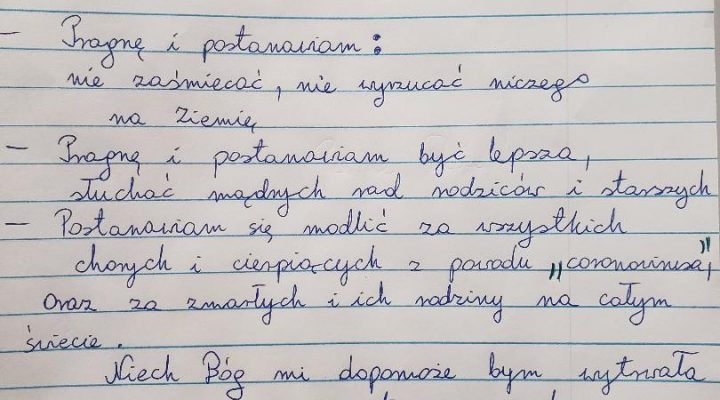 - Pragnę i postanawiam:
nie zaśmiecać, nie wyrzucać niczego
na Ziemię
- Pragnę i postanawiam być lepsza,
słuchać mądrych rad rodziców i starszych
- Postanawiam się modlić za wszystkich
chorych i cierpiących z powodu „coronovirusa",
oraz za zmarłych i ich rodziny na całym
świecie.
Niech Bóg mi dopomoże bym wytrwała